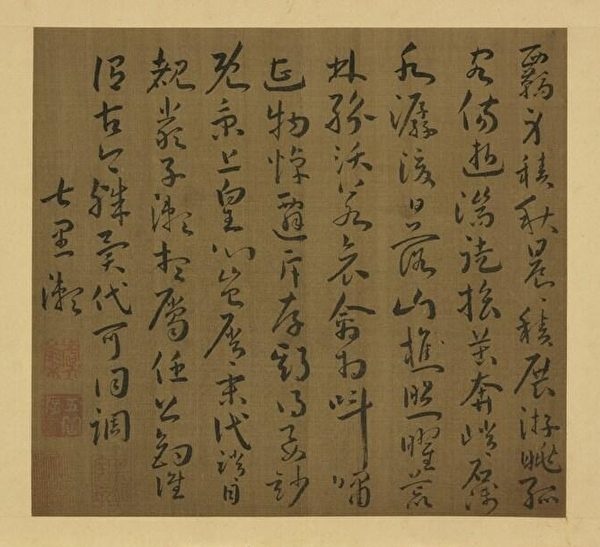 羈心積秋晨〻積展游眺孤
客傷逝湍徒旅苦奔峭石淺
水潺湲日落山樵照曜荒
林紛沃若哀禽相叫嘯
遭物悼遷斥存期得要妙
既秉上皇心豈屑末代誚目
覩嚴子瀨想屬任公釣誰
謂古今殊異代可同調
七里瀨